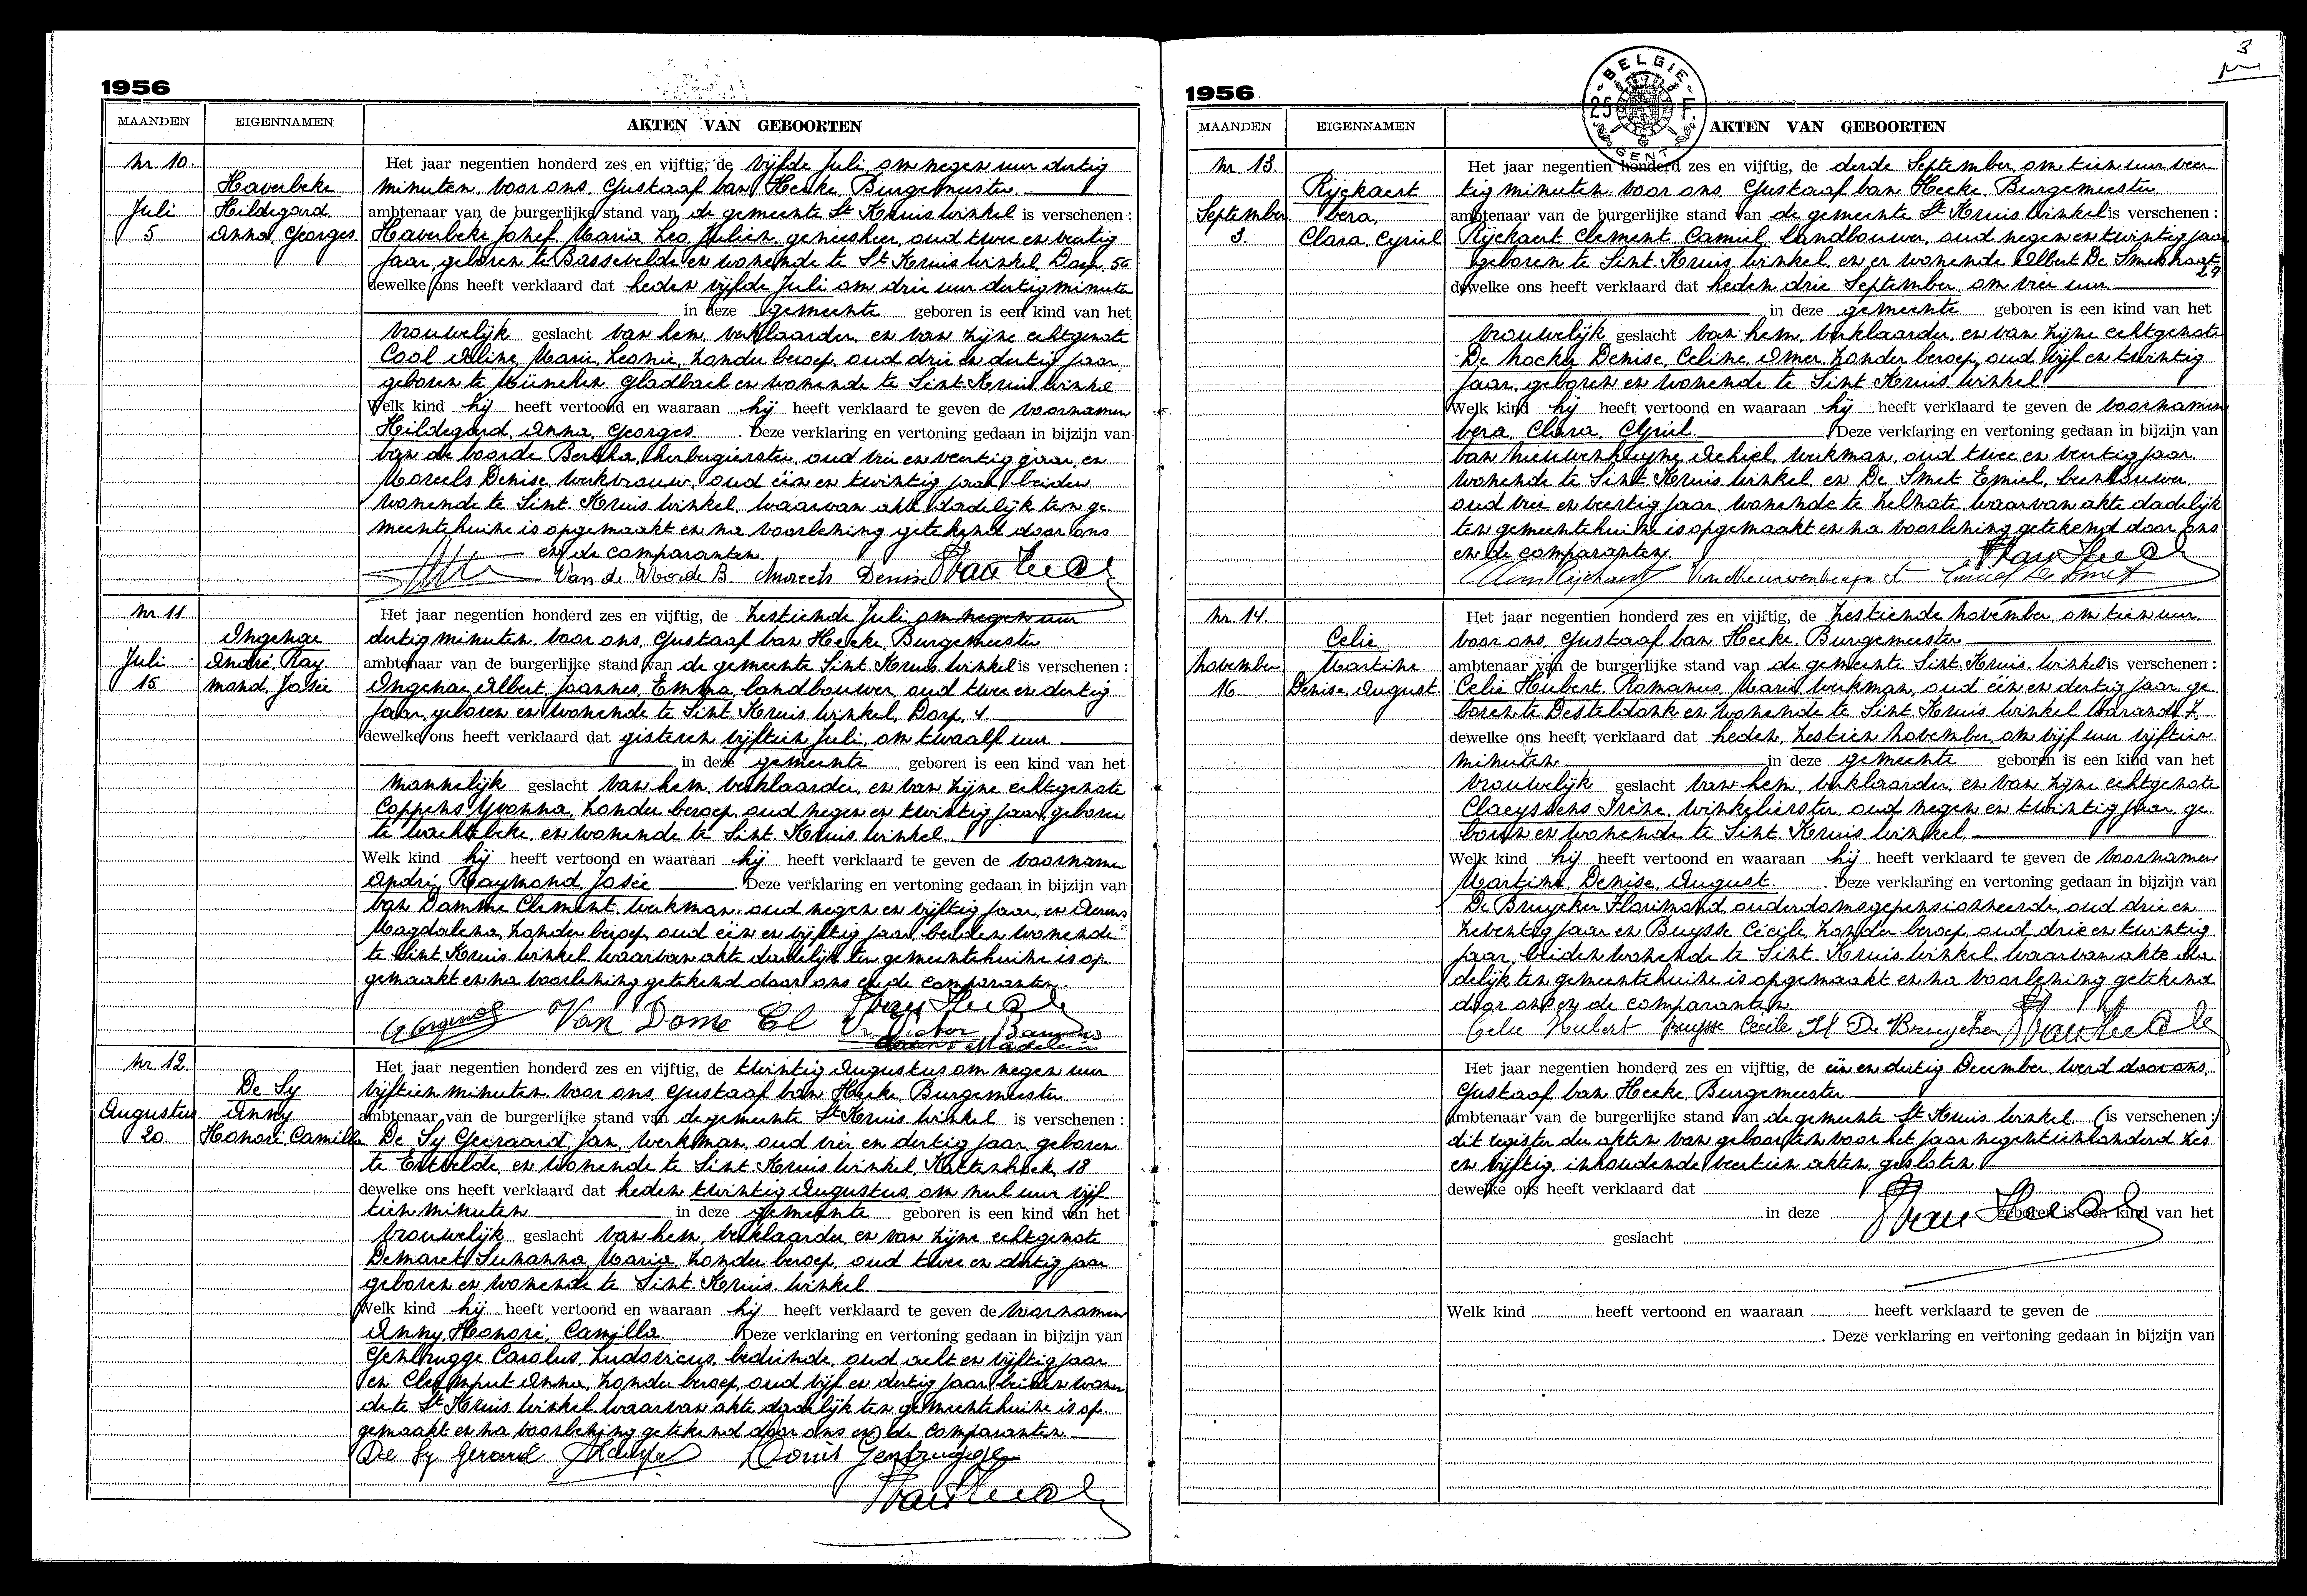 3
1956
MAANDEN EIGENNAMEN AKTEN VAN GEBOORTEN
Nr. 10.
Haverbeke
Hildegard
Anna, Georges
Juli
5
Het jaar negentien honderd zes en vijftig, de vijfde Juli om negen uur dertig
minuten, voor ons, Gustaaf Van Hecke, Burgemeester
ambtenaar van de burgerlijke stand van de gemeente St Kruis Winkel is verschenen :
Haverbeke Jozef, Maria, Leo, Julien, geneesheer, oud twee en veertig
jaar, geboren te Bassevelde en wonende te St Kruis Winkel, Dorp, 56
dewelke ons heeft verklaard dat heden vijfde Juli om drie uur dertig minuten
in deze gemeente geboren is een kind van het
vrouwelijk geslacht van hem, verklaarder, en van zijne echtgenote
Cool Aline, Marie, Leonie, zonder beroep, oud drie en dertig jaar,
geboren te München Gladbach en wonende te Sint Kruis Winkel
Welk kind hij heeft vertoond en waaraan hij heeft verklaard te geven de voornamen
Hildegard, Anna, Georges. Deze verklaring en vertoning gedaan in bijzijn van
Van de Voorde Bertha, herbergierster, oud vier en veertig jaar, en
Moreels Denise, werkvrouw, oud één en twintig jaar, beiden
wonende te Sint Kruis Winkel, waarvan akte dadelijk ten ge-
meentehuize is opgemaakt en na voorlezing getekend door ons
en de comparanten.
Van de Voorde B. Moreels Denise Van Hecke
Nr. 11.
Ongenae
André, Ray
mond, Josée
Juli
15
Het jaar negentien honderd zes en vijftig, de zestiende Juli om negen uur
dertig minuten, voor ons, Gustaaf Van Hecke, Burgemeester
ambtenaar van de burgerlijke stand van de gemeente Sint Kruis Winkel is verschenen :
Ongenae Albert, Joannes, Emma, landbouwer, oud twee en dertig
jaar, geboren en wonende te Sint Kruis Winkel, Dorp, 4
dewelke ons heeft verklaard dat gisteren vijftien Juli, om twaalf uur
in deze gemeente geboren is een kind van het
mannelijk geslacht van hem, verklaarder, en van zijne echtgenote
Coppens Yvonna, zonder beroep, oud negen en twintig jaar, geboren
te Wachtebeke, en wonende te Sint Kruis Winkel.
Welk kind hij heeft vertoond en waaraan hij heeft verklaard te geven de voornamen
André, Raymond, Josée. Deze verklaring en vertoning gedaan in bijzijn van
Van Damme Clement, werkman, oud negen en vijftig jaar, en Aerens
Magdalena, zonder beroep, oud een en vijftig jaar, beiden wonende
te Sint Kruis Winkel waarvan akte dadelijk ten gemeentehuize is op-
gemaakt en na voorlezing getekend door ons en de comparanten.
Van Hecke
Van Dome Cl
Nr. 12.
De Sy
Anny
Honoré, Camilla
Augustus
20
Het jaar negentien honderd zes en vijftig, de twintig Augustus om negen uur
vijftien minuten voor ons, Gustaaf Van Hecke, Burgemeester
ambtenaar van de burgerlijke stand van de gemeente St Kruis Winkel is verschenen :
De Sy Geeraard, Jan, werkman, oud vier en dertig jaar, geboren
te Ertvelde, en wonende te Sint Kruis Winkel, Kattenhoek, 18
dewelke ons heeft verklaard dat heden twintig Augustus om nul uur vijf-
tien minuten in deze gemeente geboren is een kind van het
vrouwelijk geslacht van hem, verklaarder, en van zijne echtgenote
Demaret Suzanna, Maria, zonder beroep, oud twee en dertig jaar
geboren en wonende te Sint Kruis Winkel
Welk kind hij heeft vertoond en waaraan hij heeft verklaard te geven de voornamen
Anny, Honoré, Camilla. Deze verklaring en vertoning gedaan in bijzijn van
Genbrugge Carolus, Ludovicus, bediende, oud acht en vijftig jaar
en Cleymput Anna, zonder beroep, oud vijf en dertig jaar, beiden wonen-
de te St Kruis Winkel waarvan akte dadelijk ten gemeentehuize is op-
gemaakt en na voorlezing getekend door ons en de comparanten
De Sy Gerard Louis Genbrugge
Van Hecke
BELGIE 25 F. GENT
1956
MAANDEN EIGENNAMEN AKTEN VAN GEBOORTEN
Nr. 13.
Rijckaert
Vera,
Clara, Cyriel
September
3.
Het jaar negentien honderd zes en vijftig, de derde September om tien uur veer-
tig minuten, voor ons, Gustaaf Van Hecke, Burgemeester
ambtenaar van de burgerlijke stand van de gemeente St Kruis Winkel is verschenen :
Rijckaert Clement, Camiel, landbouwer, oud negen en twintig jaar
geboren te Sint Kruis Winkel, en er wonende Albert De Smetstraat
29
dewelke ons heeft verklaard dat heden drie September, om vier uur
in deze gemeente geboren is een kind van het
vrouwelijk geslacht van hem, verklaarder, en van zijne echtgenote
De Nocker Denise, Celine, Omer, zonder beroep, oud vijf en twintig
jaar, geboren en wonende te Sint Kruis Winkel
Welk kind hij heeft vertoond en waaraan hij heeft verklaard te geven de voornamen
Vera, Clara, Cyriel. Deze verklaring en vertoning gedaan in bijzijn van
Van Nieuwenhuyse Achiel, werkman, oud twee en veertig jaar
wonende te Sint Kruis Winkel, en De Smet Emiel, beenhouwer,
oud vier en veertig jaar, wonende te Zelzate waarvan akte dadelijk
ten gemeentehuize is opgemaakt en na voorlezing getekend door ons
en de comparanten.
Van Hecke
Clem Rijckaert Emiel De Smet
Nr. 14.
Celie
Martine
Denise, August
November
16
Het jaar negentien honderd zes en vijftig, de zestiende November, om tien uur
voor ons, Gustaaf Van Hecke, Burgemeester
ambtenaar van de burgerlijke stand van de gemeente Sint Kruis Winkel is verschenen :
Celie Hubert, Romanus, Marie, werkman, oud één en dertig jaar, ge-
boren te Desteldonk en wonende te Sint Kruis Winkel Warande 7
dewelke ons heeft verklaard dat heden, zestien November, om vijf uur vijftien
minuten in deze gemeente geboren is een kind van het
vrouwelijk geslacht van hem, verklaarder, en van zijne echtgenote
Claeyssens Irène, winkelierster, oud negen en twintig jaar, ge-
boren en wonende te Sint Kruis Winkel.
Welk kind hij heeft vertoond en waaraan hij heeft verklaard te geven de voornamen
Martine, Denise, August. Deze verklaring en vertoning gedaan in bijzijn van
De Bruycker Florimond, ouderdomsgepensionneerde, oud drie en
zeventig jaar en Buysse Cécile, zonder beroep, oud drie en twintig
jaar, beiden wonende te Sint Kruis Winkel waarvan akte da-
delijk ten gemeentehuize is opgemaakt en na voorlezing getekend
door ons en de comparanten
Celie Hubert Buysse Cécile Fl De Bruycker Van Hecke
Het jaar negentien honderd zes en vijftig, de één en dertig December werd door ons
Gustaaf Van Hecke, Burgemeester
ambtenaar van de burgerlijke stand van de gemeente St Kruis Winkel (is verschenen :)
dit register der akten van geboorten voor het jaar negentienhonderd zes
en vijftig, inhoudende veertien akten, gesloten.
dewelke ons heeft verklaard dat
in deze geboren is een kind van het
Van Hecke
geslacht
Welk kind heeft vertoond en waaraan heeft verklaard te geven de
. Deze verklaring en vertoning gedaan in bijzijn van